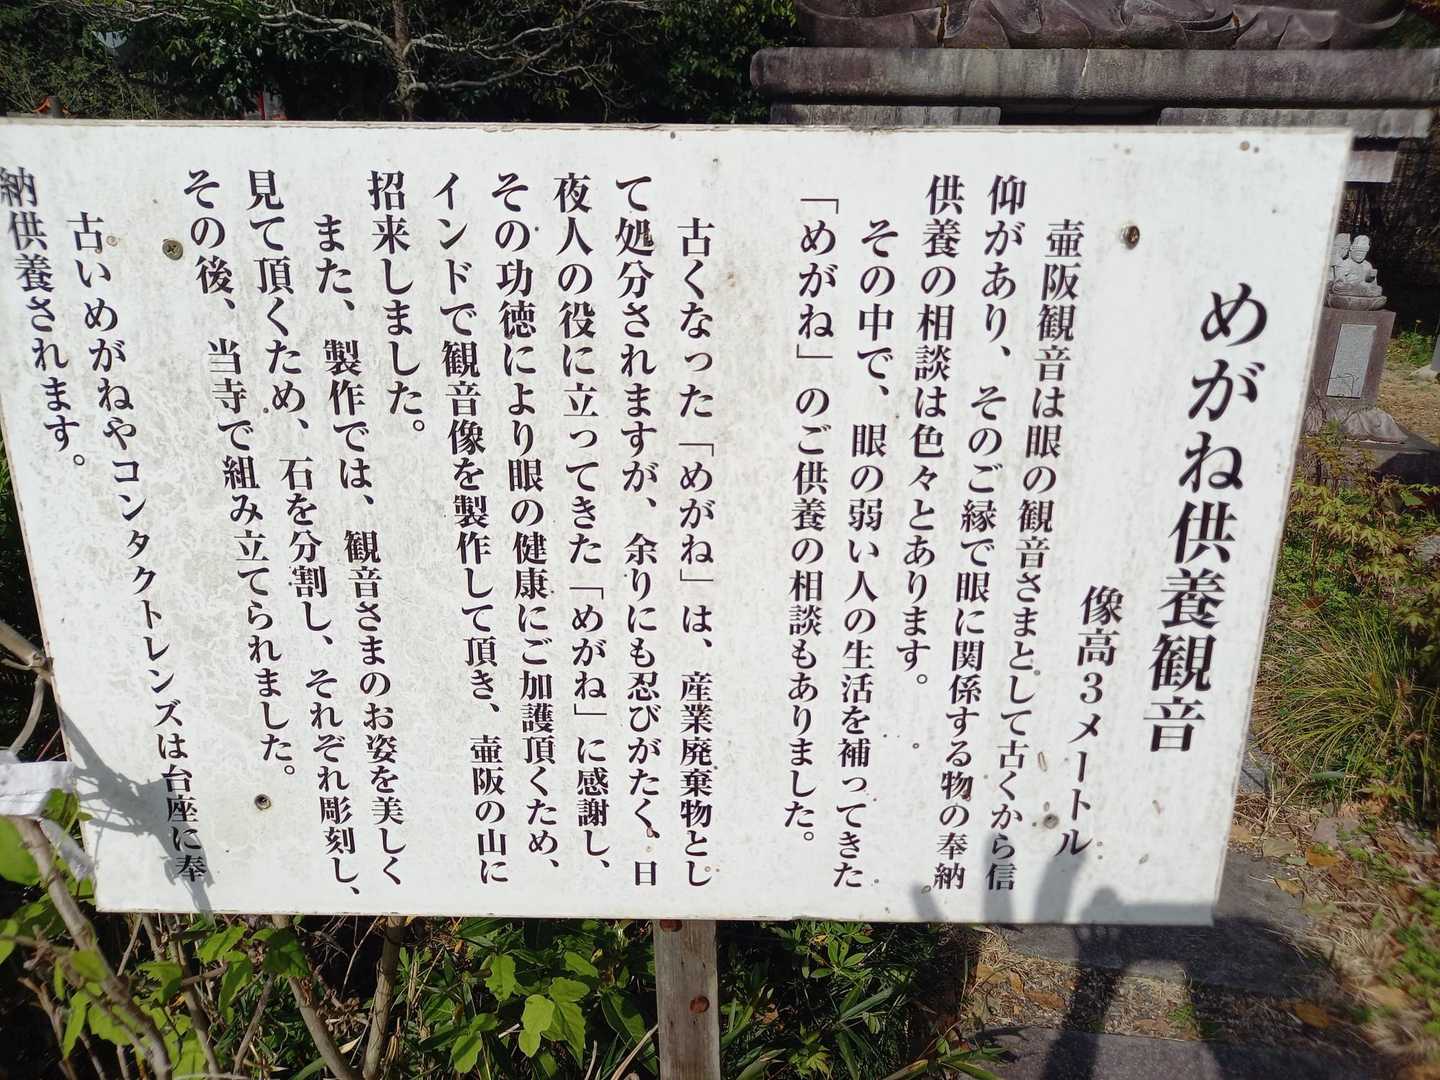 めがね供養観音
像高3メートル
壷阪観音は眼の観音さまとして古くから信
仰があり、そのご縁で眼に関係する物の奉納
供養の相談は色々とあります。
その中で、眼の弱い人の生活を補ってきた
「めがね」のご供養の相談もありました。
古くなった「めがね」は、産業廃棄物とし
て処分されますが、余りにも忍びがたく、日
夜人の役に立ってきた「めがね」に感謝し、
その功徳により眼の健康にご加護頂くため、
インドで観音像を製作して頂き、壷阪の山に
招来しました。
また、製作では、観音さまのお姿を美しく
見て頂くため、石を分割し、それぞれ彫刻し、
その後、当寺で組み立てられました。
古いめがねやコンタクトレンズは台座に奉
納供養されます。